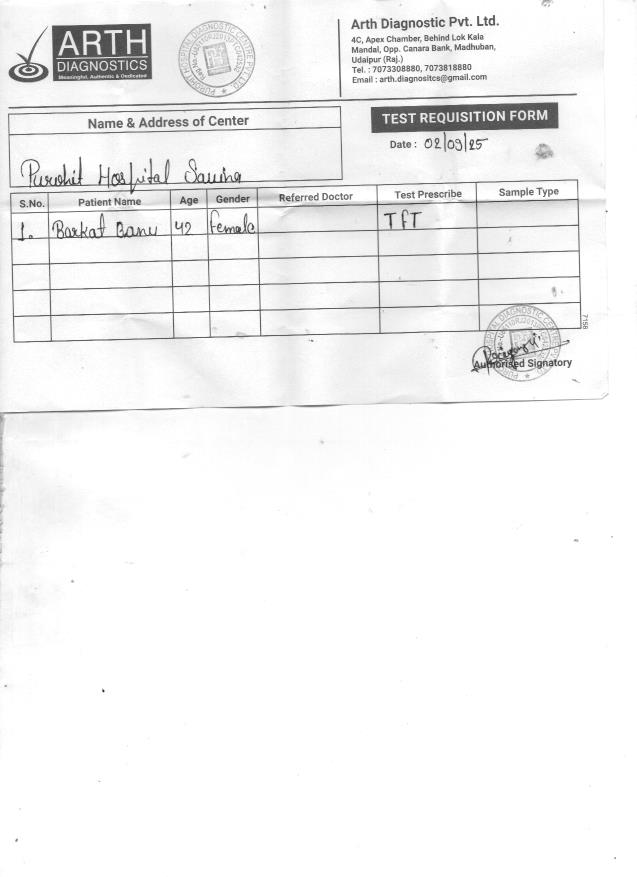 ARTH
DIAGNOSTICS
Meaningful, Authentic & Dedicated
Arth Diagnostic Pvt. Ltd.
4C, Apex Chamber, Behind Lok Kala
Mandal, Opp. Canara Bank, Madhuban,
Udaipur (Raj.)
Tel. : 7073308880, 7073818880
Email : arth.diagnositcs@gmail.com
Name & Address of Center
TEST REQUISITION FORM
Date : 02/09/25
Purohit Hospital
S.No. Patient Name Age Gender Referred Doctor Test Prescribe Sample Type
1. Barkat Banu 42 Female TFT
7158
Authorised Signatory